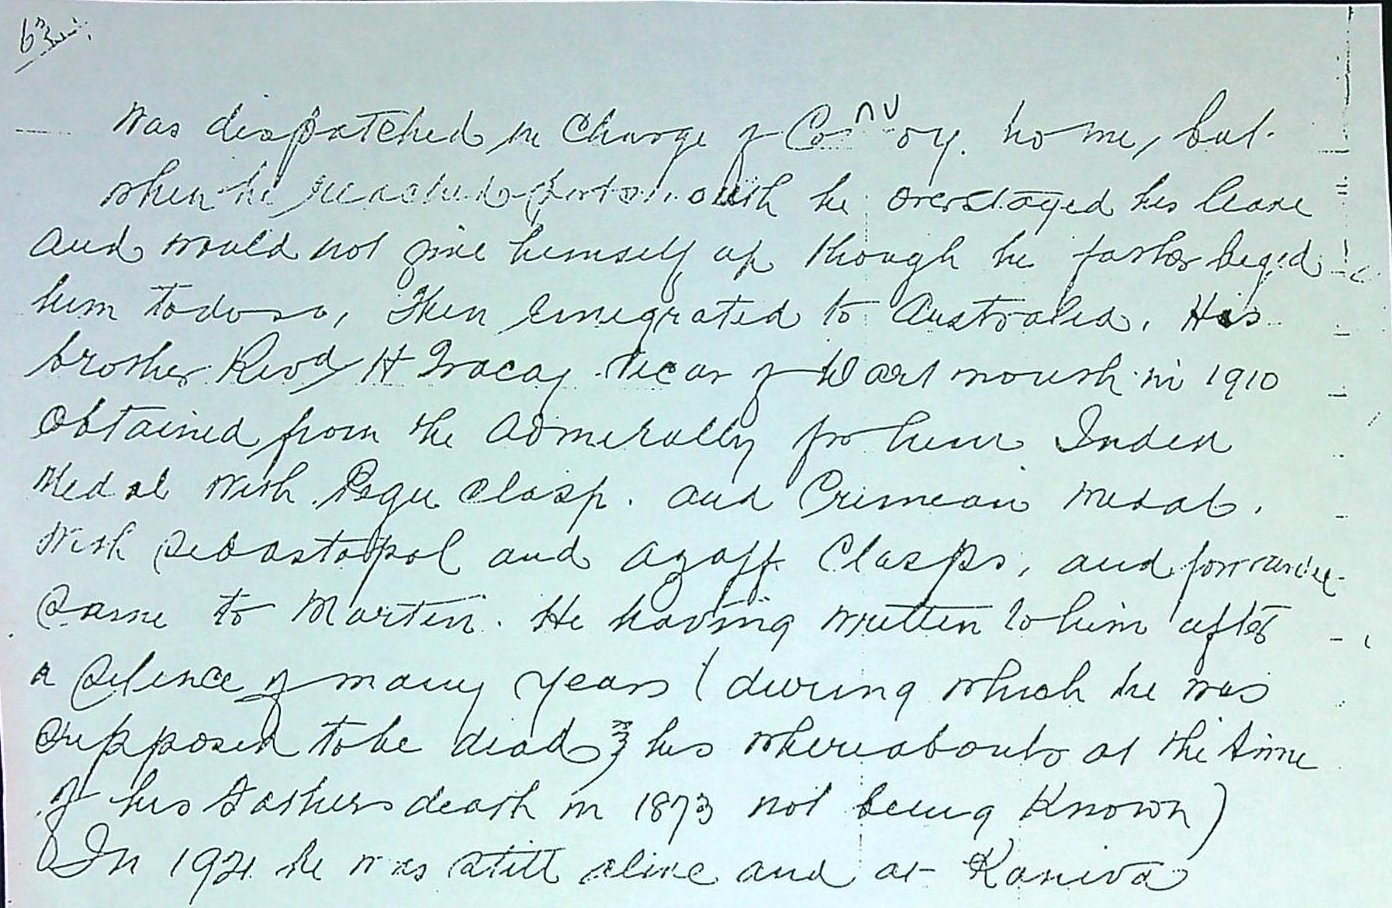 63
was dispatched in Charge of Convoy. home, but
when he reached Portsmouth he overstayed his leave
and would not give himself up though he father beged
him to do so, Then Emegrated to Australia. His
brother Revd H Tracey Vicar of Dartmouth in 1910
Obtained from the Admerally for him Indea
Medal with Pegu Clasp. and Crimean Medal.
With Sebastapol and Azoff Clasps, and forwarded
Same to Martin. He having written to him after
a Silence of many years (during which he was
supposed to be dead his whereabouts at the time
of his Fathers death in 1873 not being Known)
In 1921 he was still alive and at Kaniva